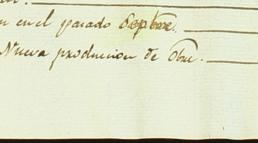 en el pasado Septbre.
Nueva produccion de Obre.